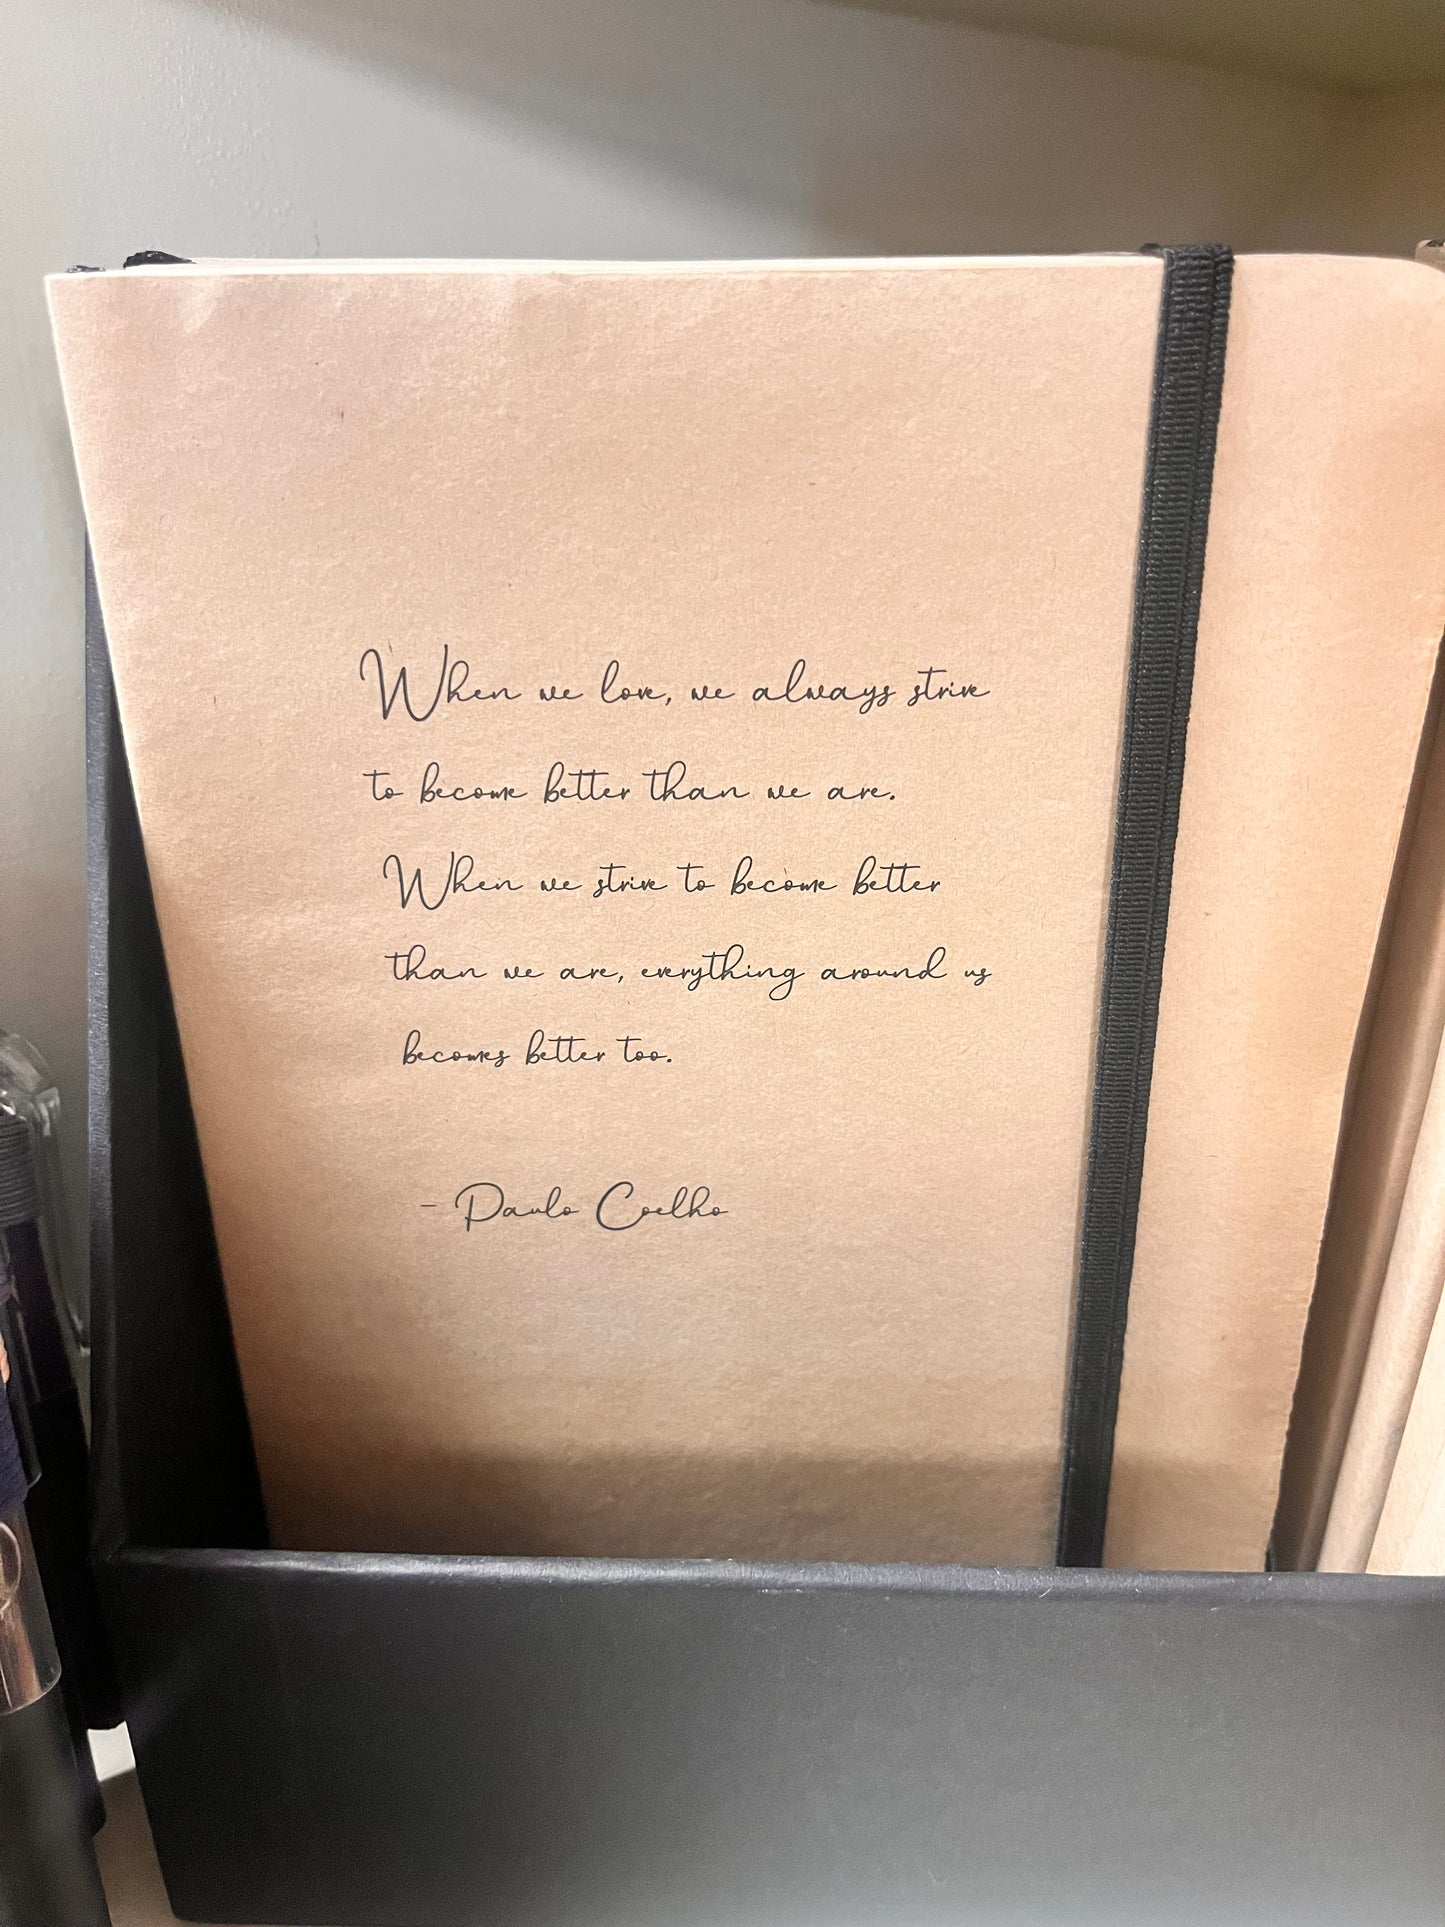 When we love, we always strive
to become better than we are.
When we strive to become better
than we are, everything around us
becomes better too.
- Paulo Coelho